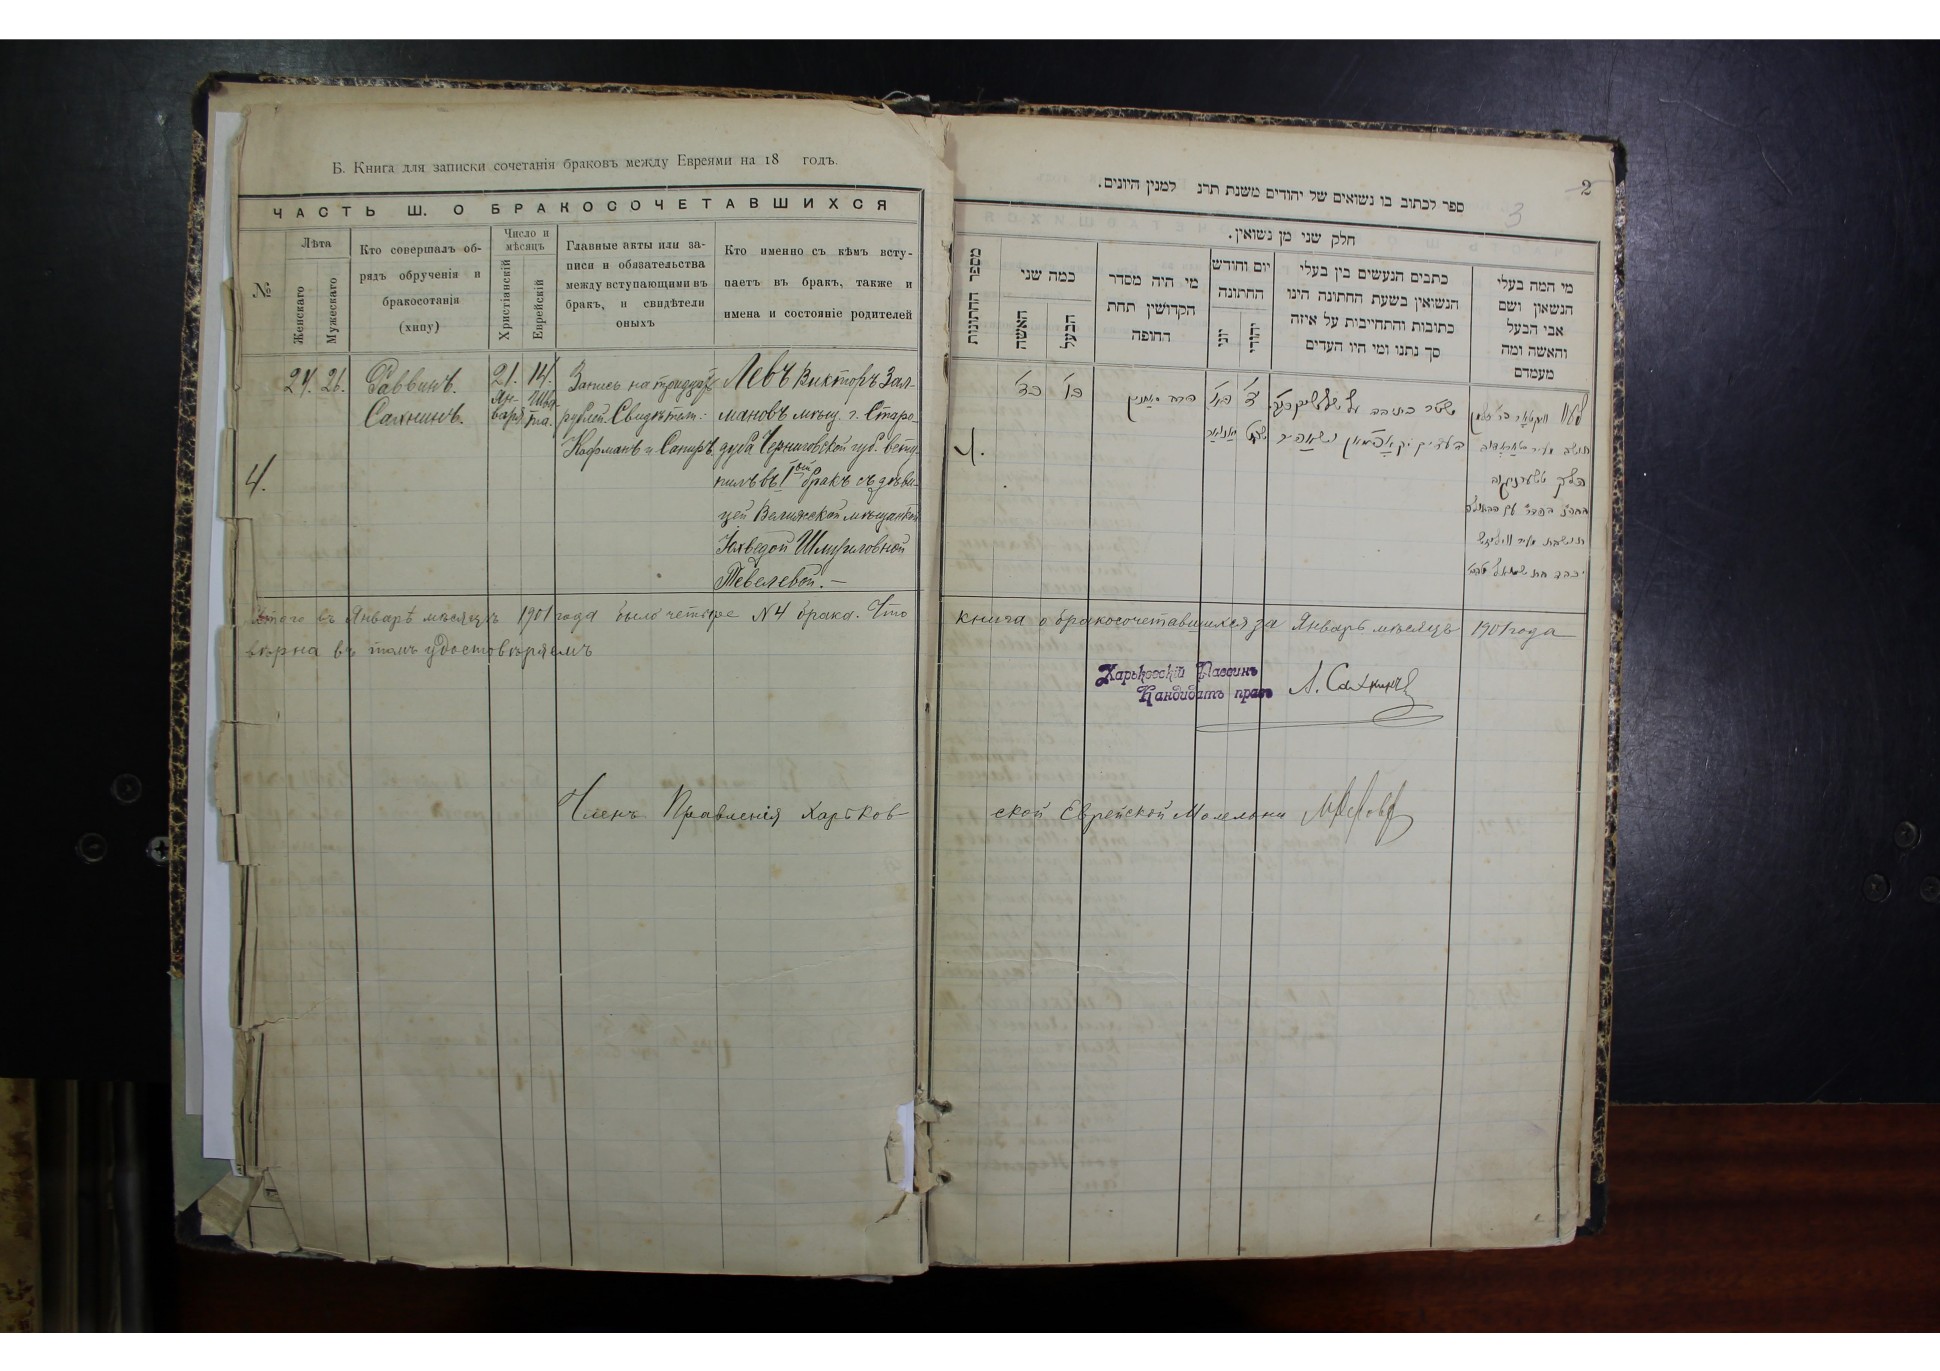 Б. Книга для записки сочетанія браковъ между Евреями на 18 годъ.
ЧАСТЬ Ш. О БРАКОСОЧЕТАВШИХСЯ
№
Лѣта
Женскаго
Мужескаго
Кто совершалъ об-
рядъ обрученія и
бракосотанія
(хипу)
Число и
мѣсяцъ
Христіанскій
Еврейскій
Главные акты или за-
писи и обязательства
между вступающими въ
бракъ, и свидѣтели
оныхъ
Кто именно съ кѣмъ всту-
паетъ въ бракъ, также и
имена и состояніе родителей
4.
24. 26.
Раввинъ.
Сахнинъ.
21.
Ян-
варя
14.
Шва-
та.
Запись на тридцать
рублей. Свидѣтели:
Кофманъ и Сапиръ.
Левъ Викторъ Зал-
мановъ мѣщ. г. Старо-
дуба Черниговской губ. всту-
пилъ въ Iый бракъ съ дѣви-
цей Велижской мѣщанкой
Іохведой Шмуиловной
Тевелевой. —
Итого въ Январѣ мѣсяцѣ 1901 года было четыре N4 брака. Что
вѣрна въ томъ удостовѣряемъ
Членъ Правленія Харьков-
2
3
ספר לכתוב בו נשואים של יהודים משנת תרנ למנין היונים.
חלק שני מן נשואין.
מספר החתונות
כמה שני
האשה
הבעל
מי היה מסדר
הקדושין תחת
החופה
יום וחודש
החתונה
יוני
יהודי
כתבים הנעשים בין בעלי
הנשואין בשעת החתונה הינו
כתובות והתחייבות על איזה
סך נתנו ומי היו העדים
מי המה בעלי
הנשואן ושם
אבי הבעל
והאשה ומה
מעמדם
4.
כד
כו
כא
יד
יאנואר
שבט
книга о бракосочетавшихся за Январь мѣсяцъ 1901 года
Харьковскій Раввинъ
Кандидатъ правъ
Л. Сахнинъ
ской Еврейской Молельни